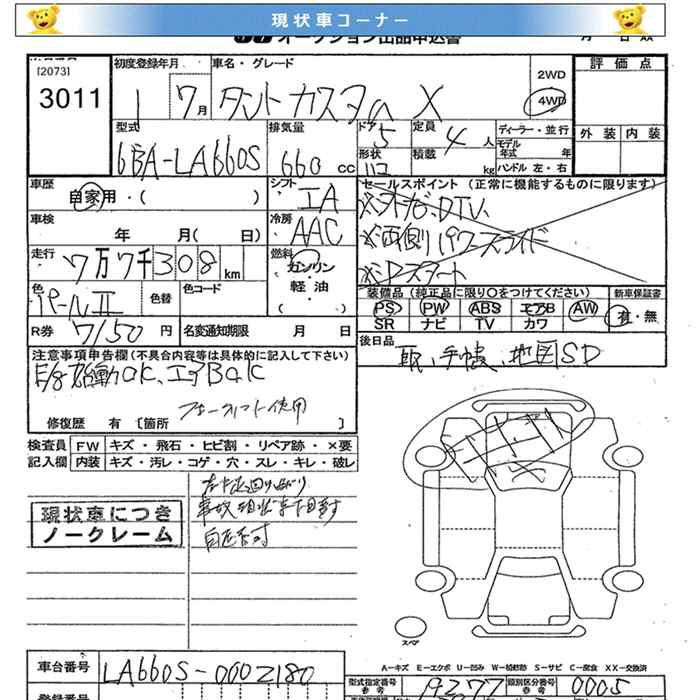 現状車コーナー
オークション出品申込書
[2073]
3011
初度登録年月
1 7月
車名・グレード
タントカスタム X
2WD
4WD
評価点
外装 内装
型式
6BA-LA660S
排気量
660 cc
ドア 5
定員 4 人
ディーラー・並行
モデル年式 年
形状
ハコ
積載 kg
ハンドル 左・右
車歴
自家用・( )
シフト
IA
セールスポイント (正常に機能するものに限ります)
※ナビ、DTV、
※両側パワースライド
※Pスタート
車検 年 月( 日)
冷房
AAC
走行 7万7千308km
燃料
ガソリン・軽油・
( )
色
パールII
色替
色コード
装備品 (純正品に限り○をつけてください)
PS PW ABS エアB AW
SR ナビ TV カワ
新車保証書
有・無
R券 7150 円
名変通知期限 月 日
後日品
取、手帳、地図SD
注意事項申告欄(不具合内容等は具体的に記入して下さい)
E/g始動OK、エアB OK
フォークリフト使用
修復歴 有 [箇所 ]
検査員記入欄
FW キズ・飛石・ヒビ割・リペア跡・×要
内装 キズ・汚レ・コゲ・穴・スレ・キレ・破レ
事故現状車下回り
自走不可
現状車につき
ノークレーム
スペア
A-キズ E-エクボ U-凹み W-補修跡 S-サビ C-腐食 XX-交換済
車台番号
LA660S-0002180
型式指定番号
参考
19377
類別区分番号
参考
0005
登録番号